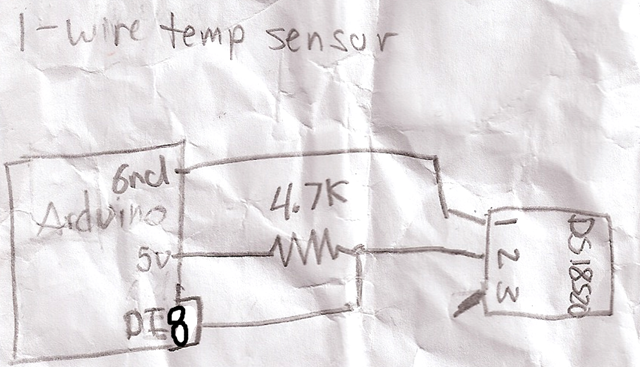 1-wire temp sensor
Gnd
4.7K
Arduino
1
DS18S20
5V
2
3
DI8